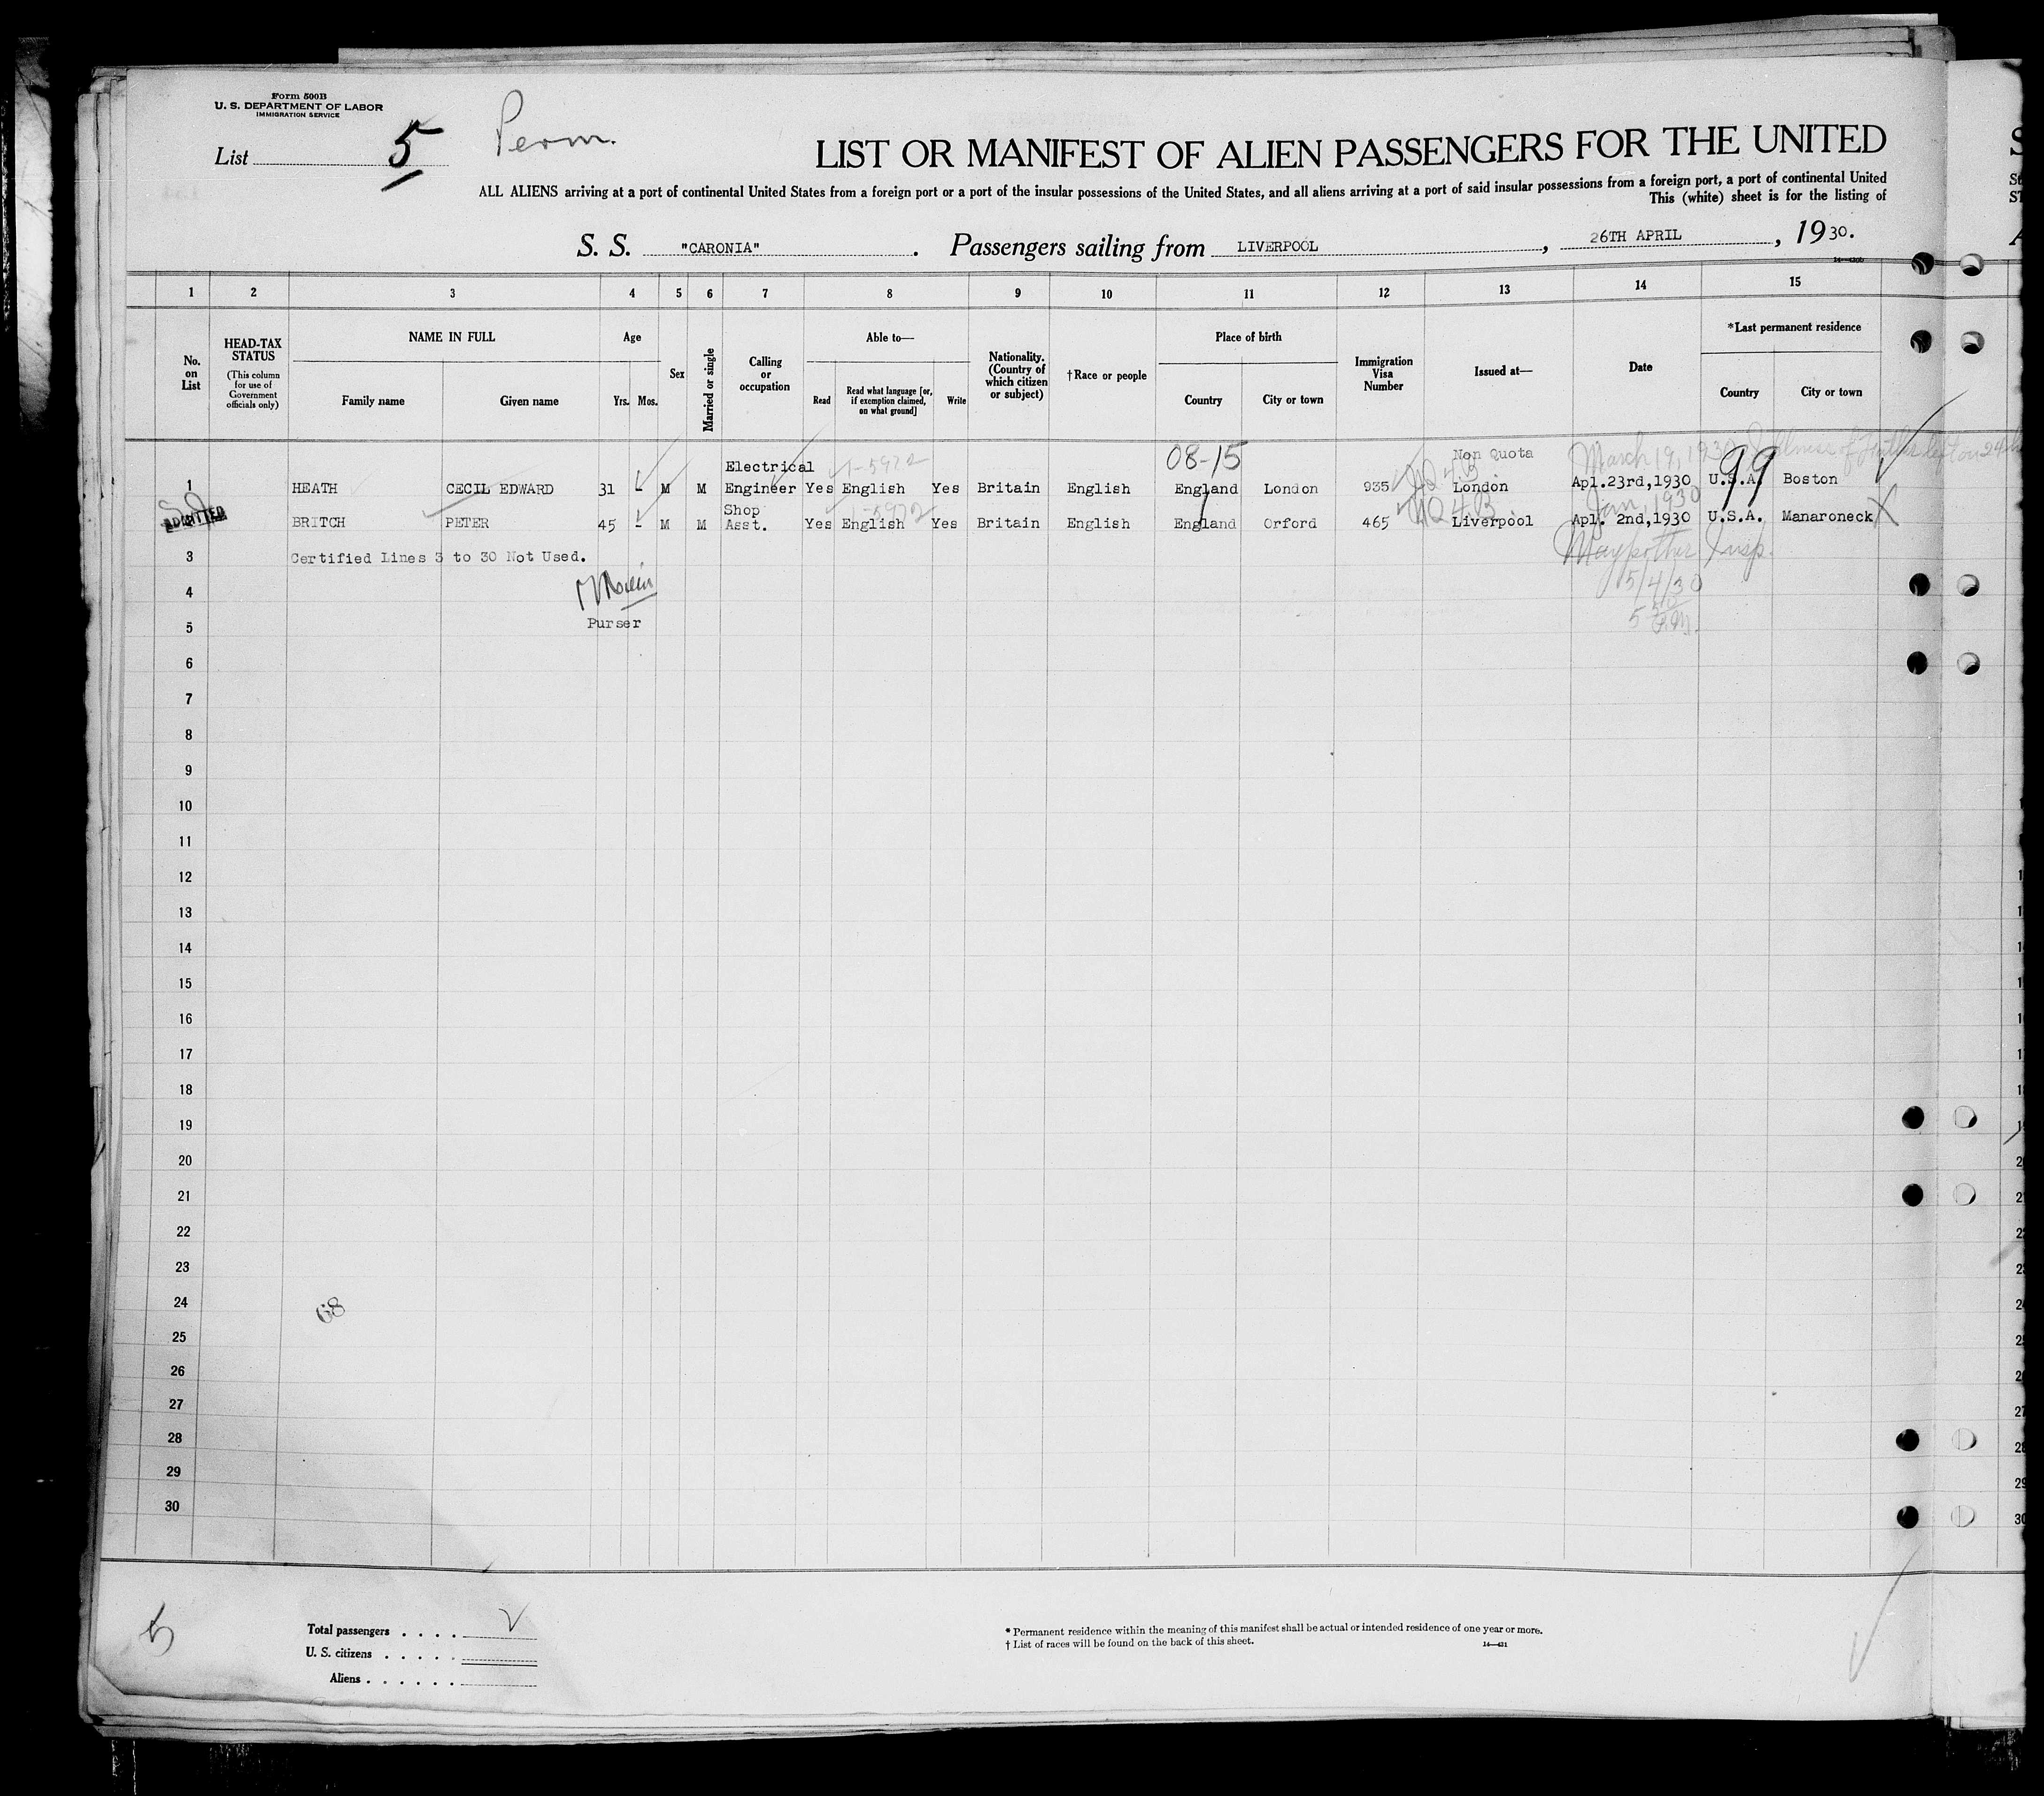 Form 500B
U. S. DEPARTMENT OF LABOR
IMMIGRATION SERVICE
List 5
Perm.
LIST OR MANIFEST OF ALIEN PASSENGERS FOR THE UNITED
ALL ALIENS arriving at a port of continental United States from a foreign port or a port of the insular possessions of the United States, and all aliens arriving at a port of said insular possessions from a foreign port, a port of continental United
This (white) sheet is for the listing of
S. S. "CARONIA" . Passengers sailing from LIVERPOOL , 26TH APRIL , 19 30.
1 2 3 4 5 6 7 8 9 10 11 12 13 14 15
No. on List
HEAD-TAX STATUS
(This column for use of Government officials only)
NAME IN FULL
Family name Given name
Age
Yrs. Mos.
Sex
Married or single
Calling or occupation
Able to—
Read
Read what language [or, if exemption claimed, on what ground]
Write
Nationality. (Country of which citizen or subject)
†Race or people
Place of birth
Country City or town
Immigration Visa Number
Issued at—
Date
*Last permanent residence
Country City or town
08-15 Non Quota March 19, 1930
1-5972
99
1 HEATH CECIL EDWARD 31 - M M Electrical Engineer Yes English Yes Britain English England London 935 London Apl.23rd,1930 U.S.A. Boston
NQ 4B
Jan, 1930
1-5972
ADMITTED BRITCH PETER 45 - M M Shop Asst. Yes English Yes Britain English England Orford 465 Liverpool Apl. 2nd,1930 U.S.A. Manaroneck
NQ 4B
3 Certified Lines 3 to 30 Not Used.
Insp.
4
5/4/30
5 Purser
6
7
8
9
10
11
12
13
14
15
16
17
18
19
20
21
22
23
24
68
25
26
27
28
29
30
5
Total passengers . . . .
U. S. citizens . . . . .
Aliens . . . . . .
* Permanent residence within the meaning of this manifest shall be actual or intended residence of one year or more.
† List of races will be found on the back of this sheet.